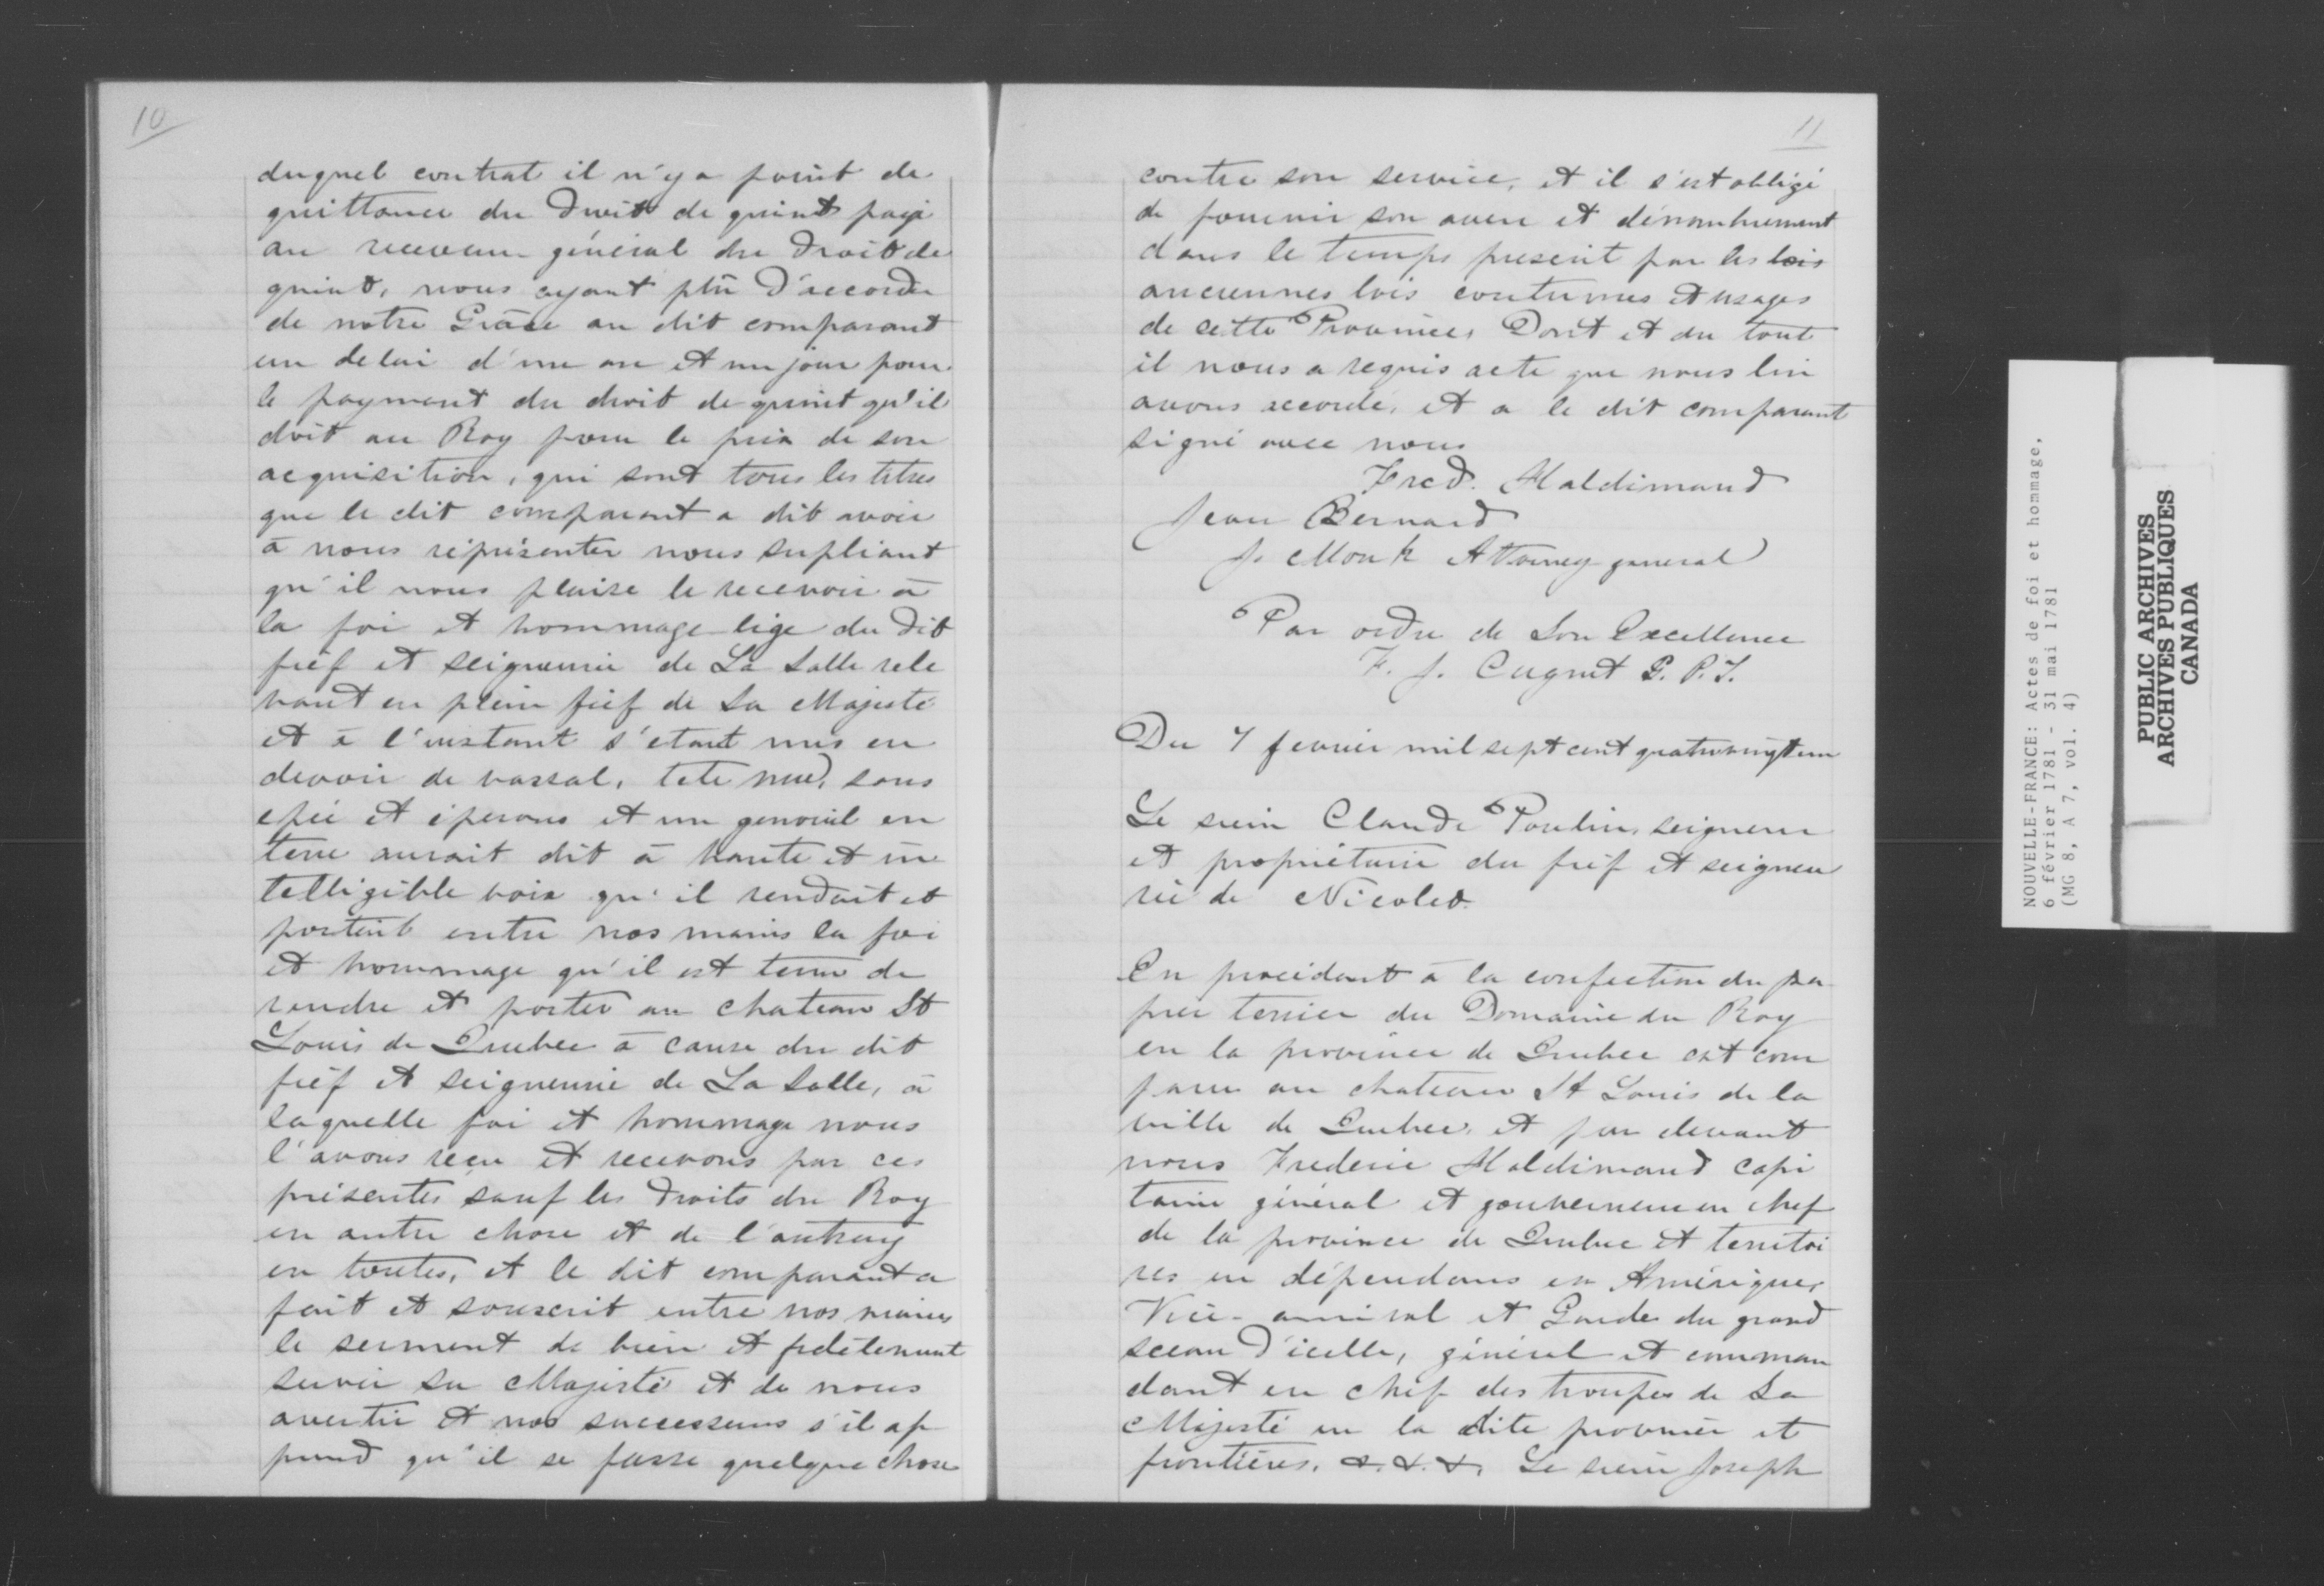 10
duquel contrat il n'y a point de
quittance du Droit de quint payé
au receveur général du Droit de
quint, nous ayant plû D'accorder
de notre Grâce au dit comparant
un delai d'un an et un jour pour
le payment du droit de quint qu'il
doit au Roy pour le prix de son
acquisition, qui sont tous les titres
que le dit comparant a dit avoir
à nous réprésenter nous supliant
qu'il nous plaise le recevoir à
la foi et hommage lige du Dit
fief et seigneurie de La Salle rele
vant en plein fief de Sa Majesté
et à l'instant s'etant mis en
devoir de vassal, tete nue, sans
epée et éperons et un genouil en
terre aurait dit à haute et in
telligible voix qu'il rendait et
portait entre nos mains la foi
et hommage qu'il est tenu de
rendre et porter au chateau St
Louis de Quebec à cause du dit
fief et seigneurie de La Salle, à
laquelle foi et hommage nous
l'avons reçu et recevons par ces
présentes sauf les Droits du Roy
en autre chose et de l'autruy
en toutes, et le dit comparant a
fait et souscrit entre nos mains
le serment de bien et fidélement
servir Sa Majesté et de nous
avertir et nos successeurs s'il ap
prend qu'il se fasse quelque chose
11
contre son service, et il s'est obligé
de fournir son aveu et dénombrement
dans le temps prescrit par les lois
anciennes lois coutumes et usages
de cette Province, Dont et du tout
il nous a requis acte que nous lui
avons accordé, et a le dit comparant
signé avec nous
Fred. Haldimand
Jean Bernard
J. Monk Attorney general
Par ordre de Son Excellence
F. J. Cugnet G. P. T.
Du 7 fevrier mil sept cent quatrevingt un
Le sieur Claude Poulin, seigneur
et propriétaire du fief et seigneu
rie de Nicolet.
En procédant à la confection du pa
pier terrier du Domaine du Roy
en la province de Quebec est com
paru au chateau St Louis de la
ville de Quebec, et par devant
nous Frederic Haldimand capi
taine général et gouverneur en chef
de la province de Quebec et territoi
res en dépendans en Amérique,
Vice-amiral et Garde du grand
sceau D'icelle, général et comman
dant en chef des troupes de Sa
Majesté en la dite province et
frontières. &. &. &. Le sieur Joseph
NOUVELLE-FRANCE: Actes de foi et hommage,
6 février 1781 - 31 mai 1781
(MG 8, A 7, vol. 4)
PUBLIC ARCHIVES
ARCHIVES PUBLIQUES
CANADA